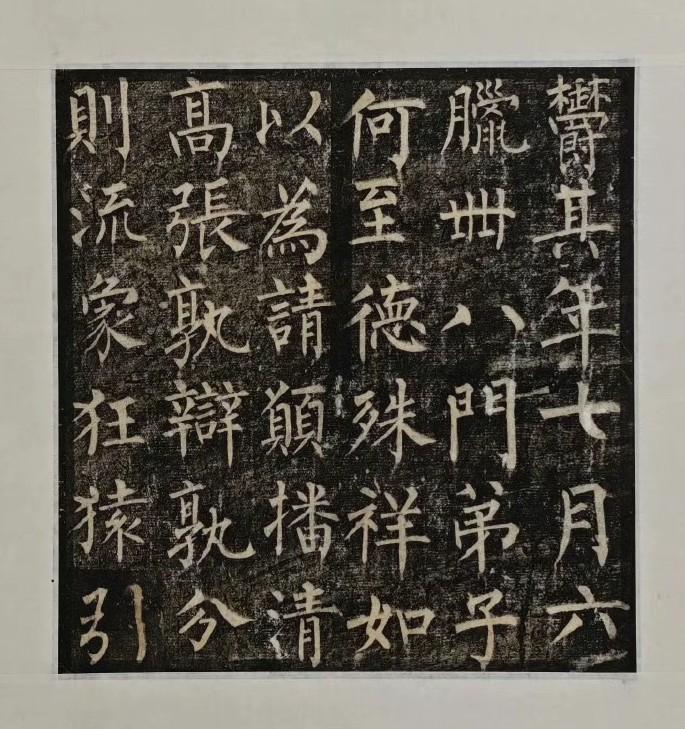 欝其年七月六
臘卌八門弟子
何至徳殊祥如
以為請顚播清
髙張孰辯孰分
則流象狂猿引